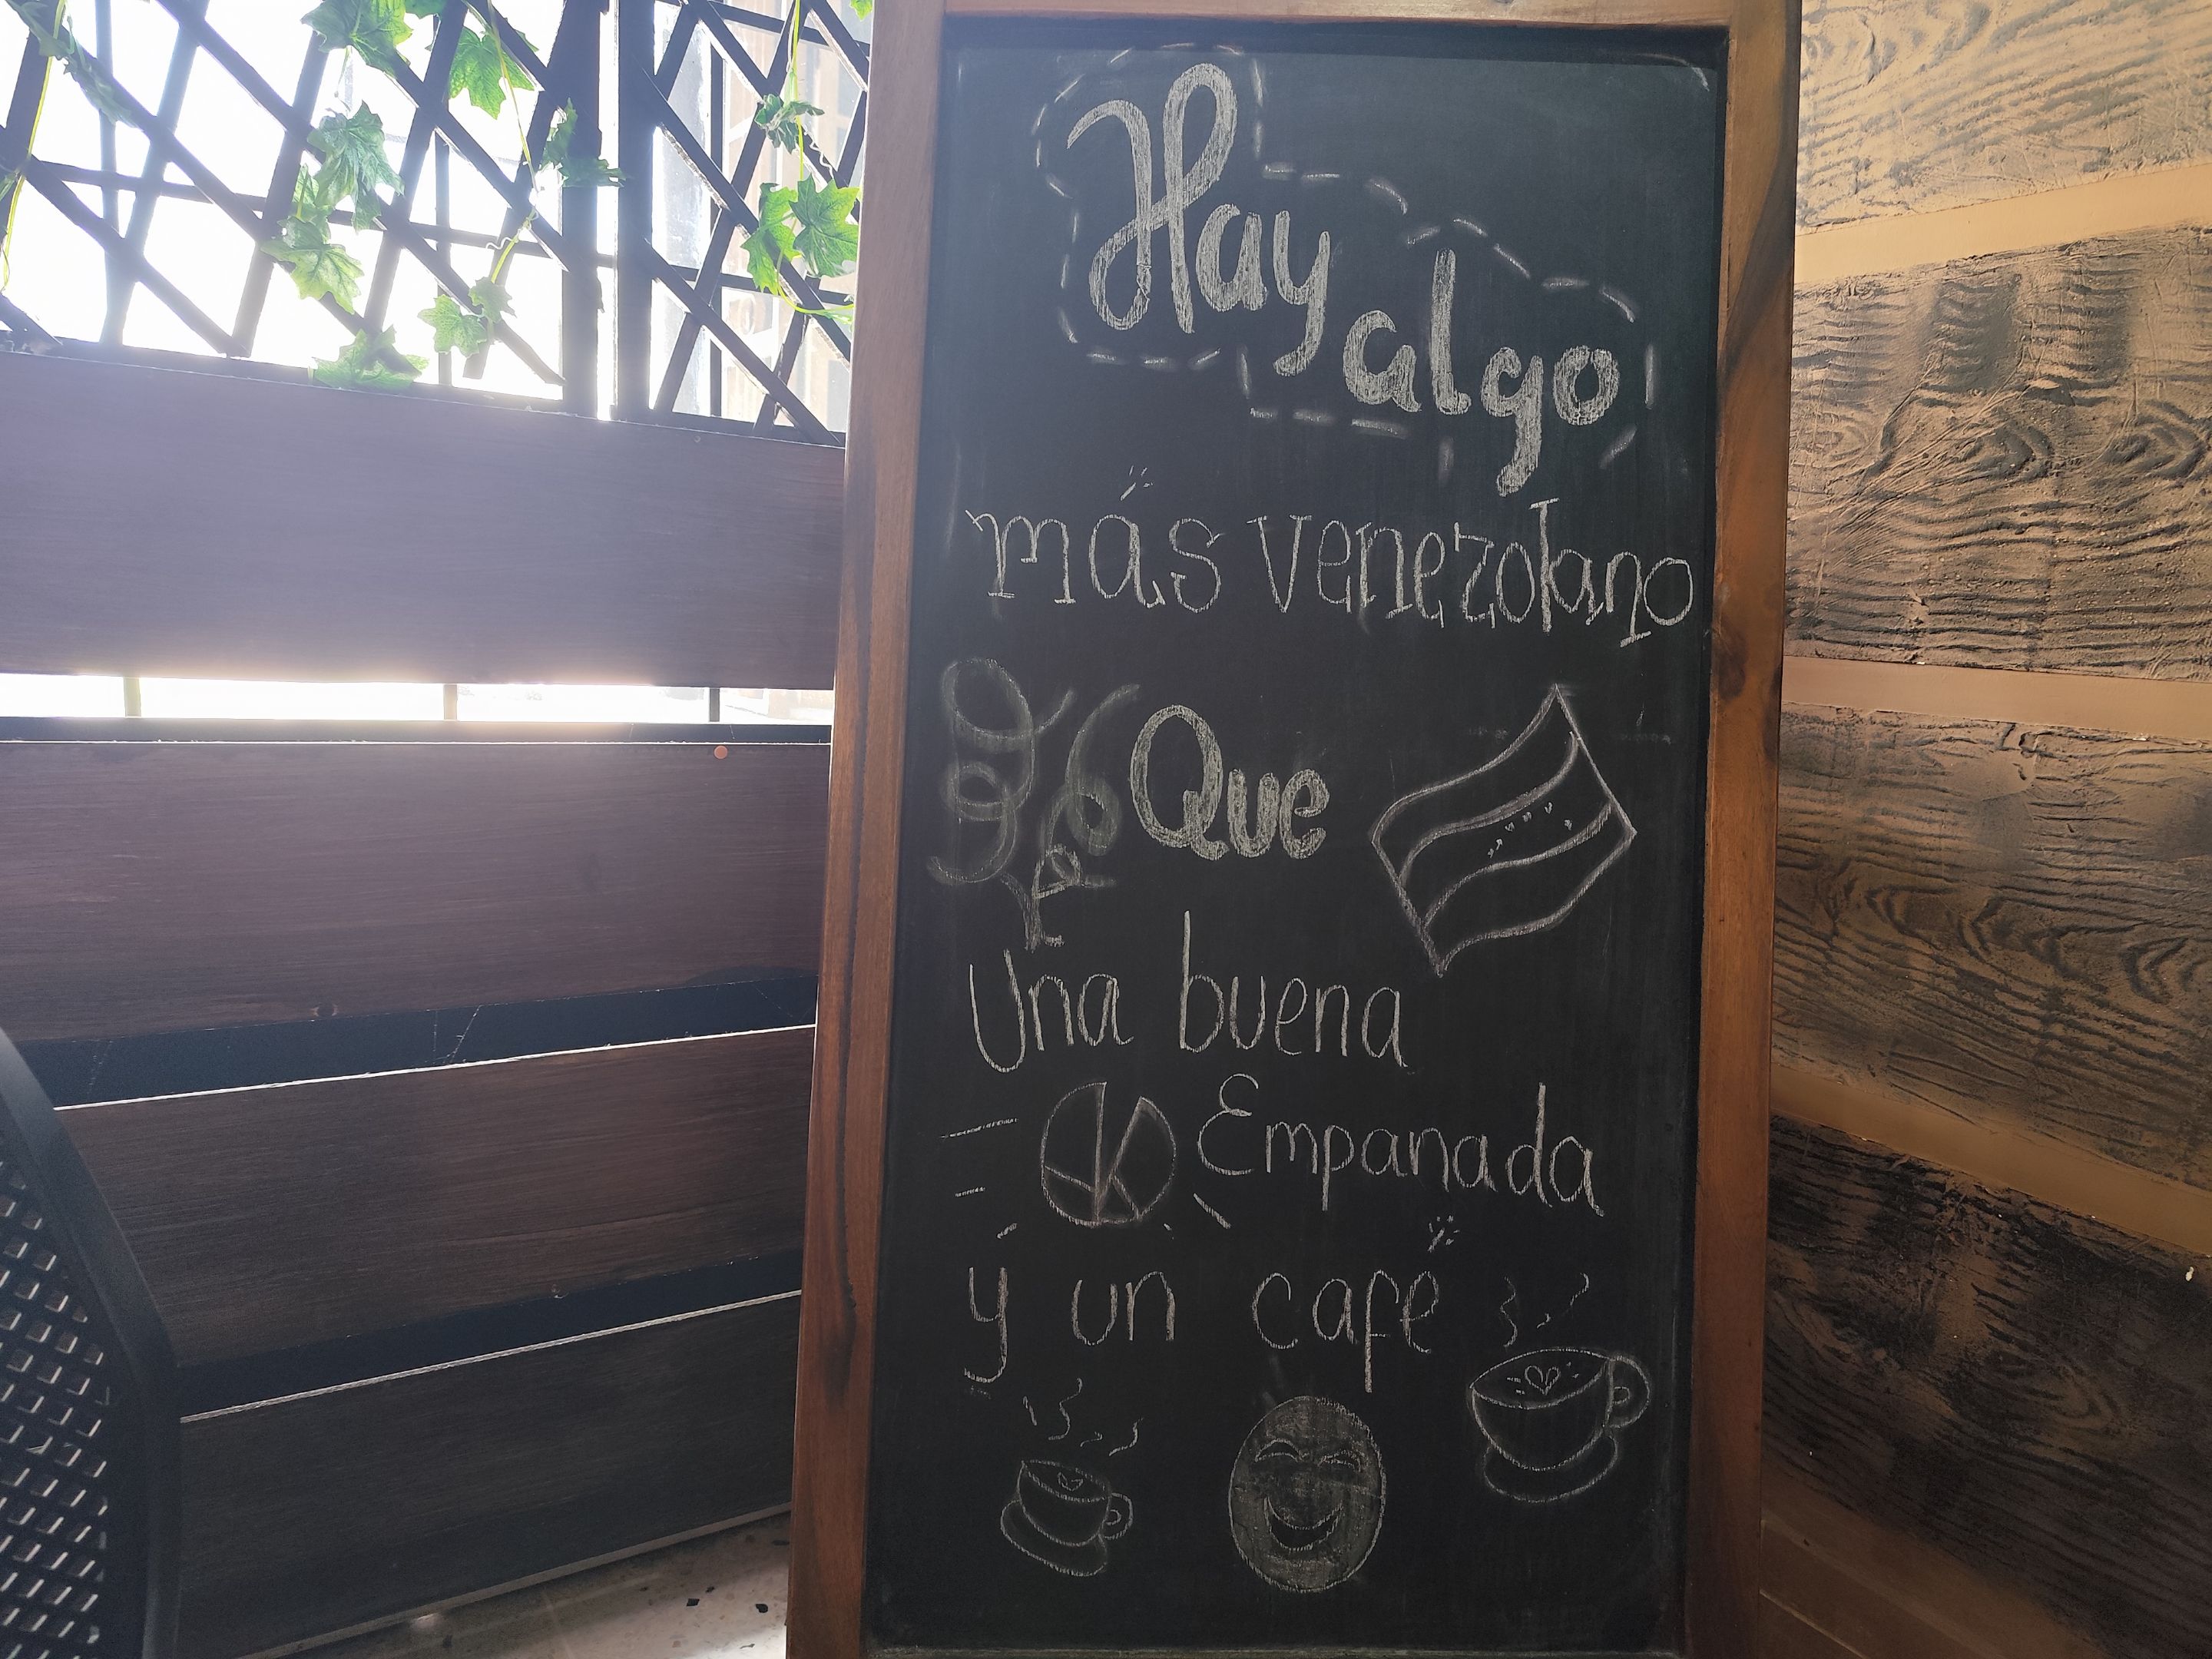 Hay
algo
más venezolano
Que
Una buena
Empanada
ý un café